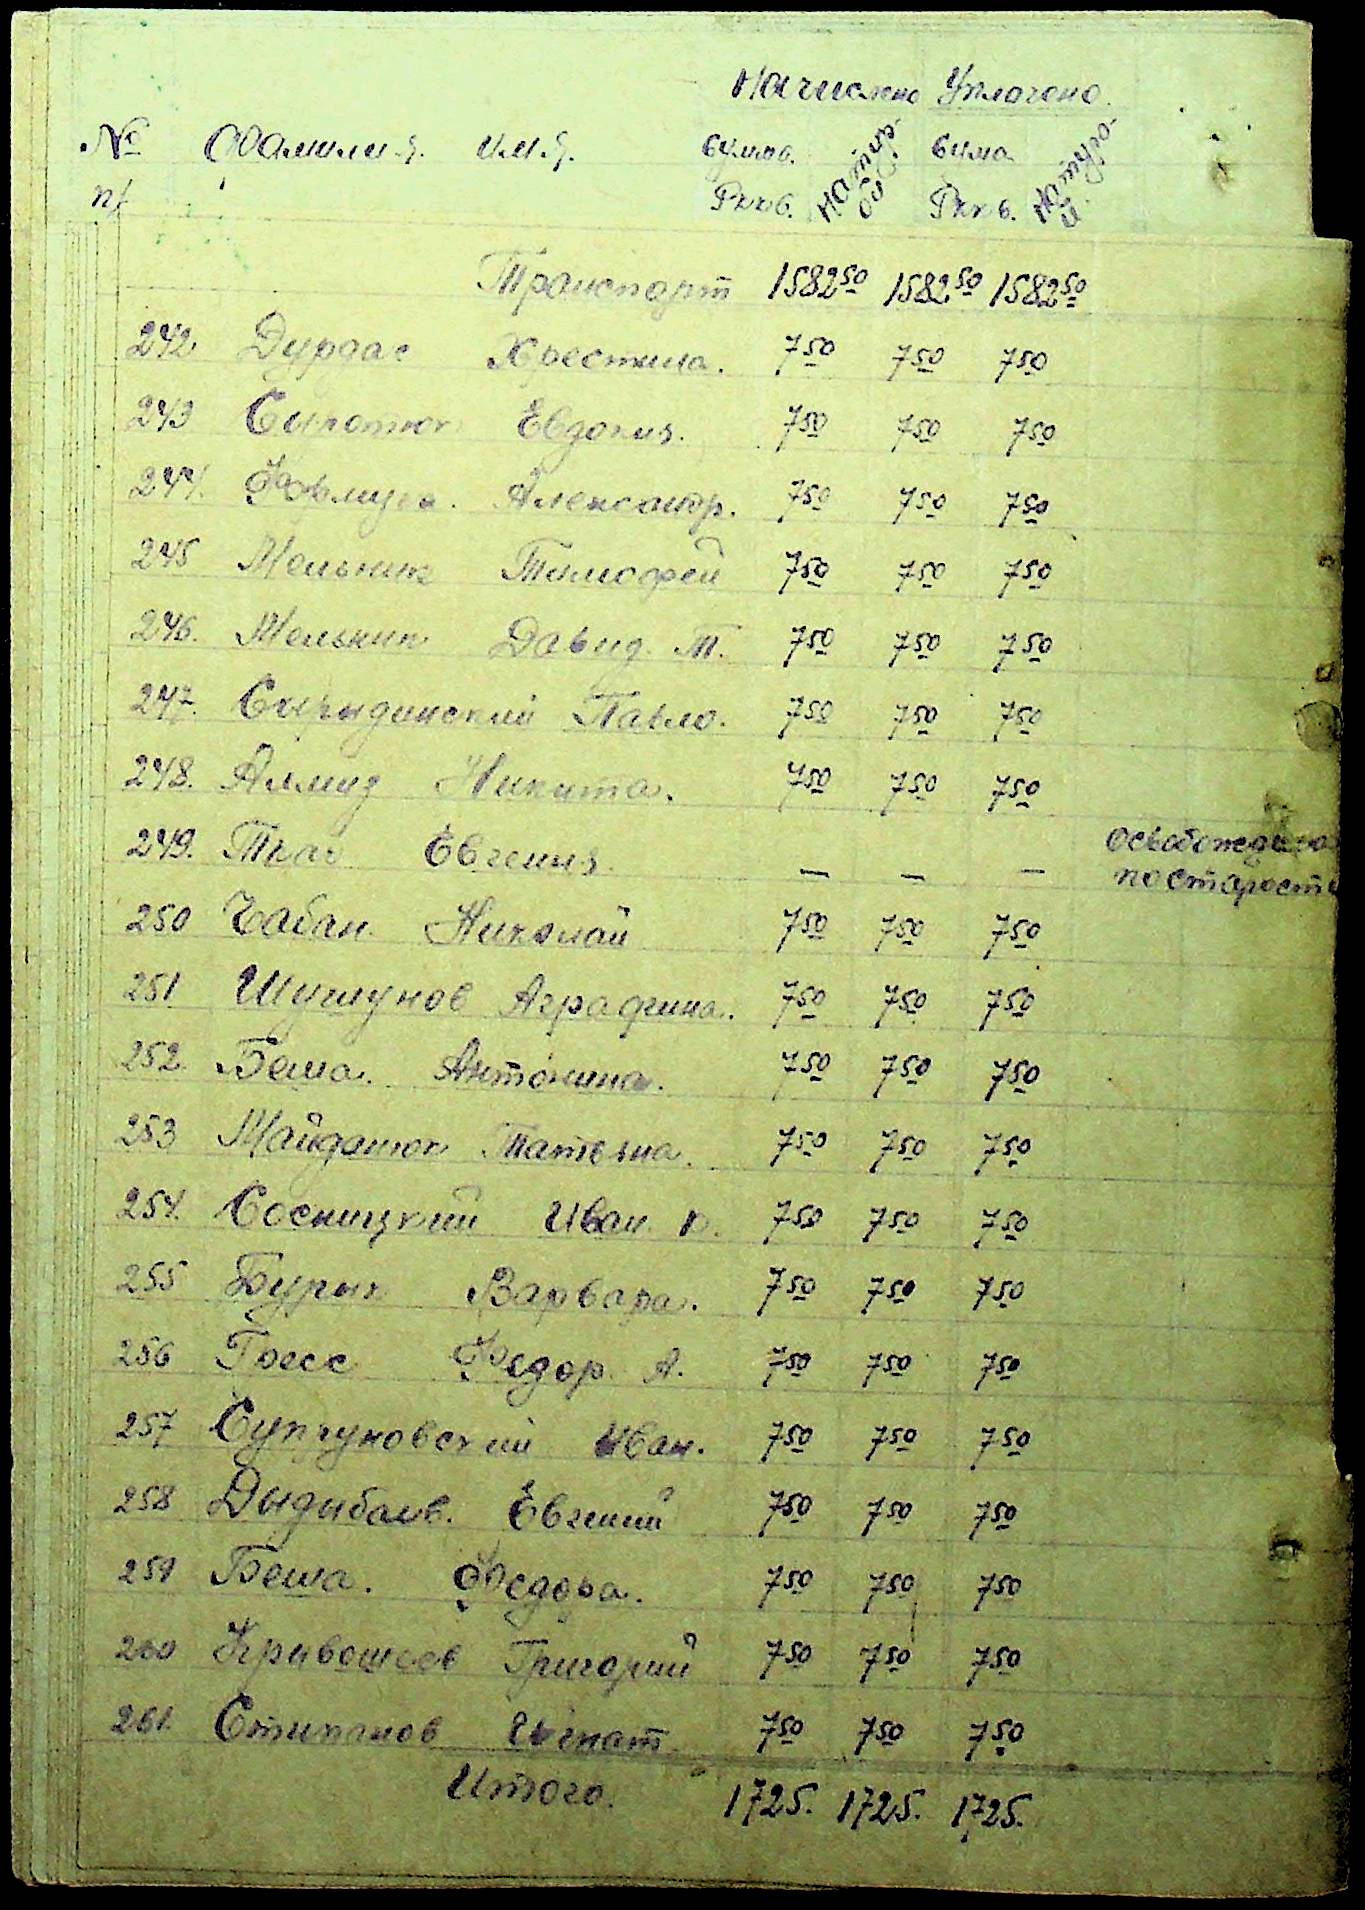 Начислено Уплочено.
№ Фамилия. Имя. сумма. Натур- сумма Натура-
п/ Рккв. Рккв.
Транспорт 1582 50 1582 50 1582 50
242 Дурбас Хрестина. 7 50 7 50 7 50
243 Сиротюк Евдокия. 7 50 7 50 7 50
244. Александр. 7 50 7 50 7 50
245 Мельник Тимофей 7 50 7 50 7 50
246. Мельник Давид. Т. 7 50 7 50 7 50
247. Павло. 7 50 7 50 7 50
248. Никита. 7 50 7 50 7 50
249. Ткач Евгения. — — — Освобождена
по старости
250 Чабан Николай 7 50 7 50 7 50
251 Аграфина. 7 50 7 50 7 50
252. Беша. Антонина. 7 50 7 50 7 50
253 Майданюк Татьяна. 7 50 7 50 7 50
254. Сосницкий Иван. 7 50 7 50 7 50
255 Бурых Варвара. 7 50 7 50 7 50
256 Гресс Федор. А. 7 50 7 50 7 50
257 Супруновский Иван. 7 50 7 50 7 50
258 Евгений 7 50 7 50 7 50
259 Беша. Федора. 7 50 7 50 7 50
260 Кривошеев Григорий 7 50 7 50 7 50
261. Стипанов Игнат 7 50 7 50 7 50
Итого. 1725. 1725. 1725.